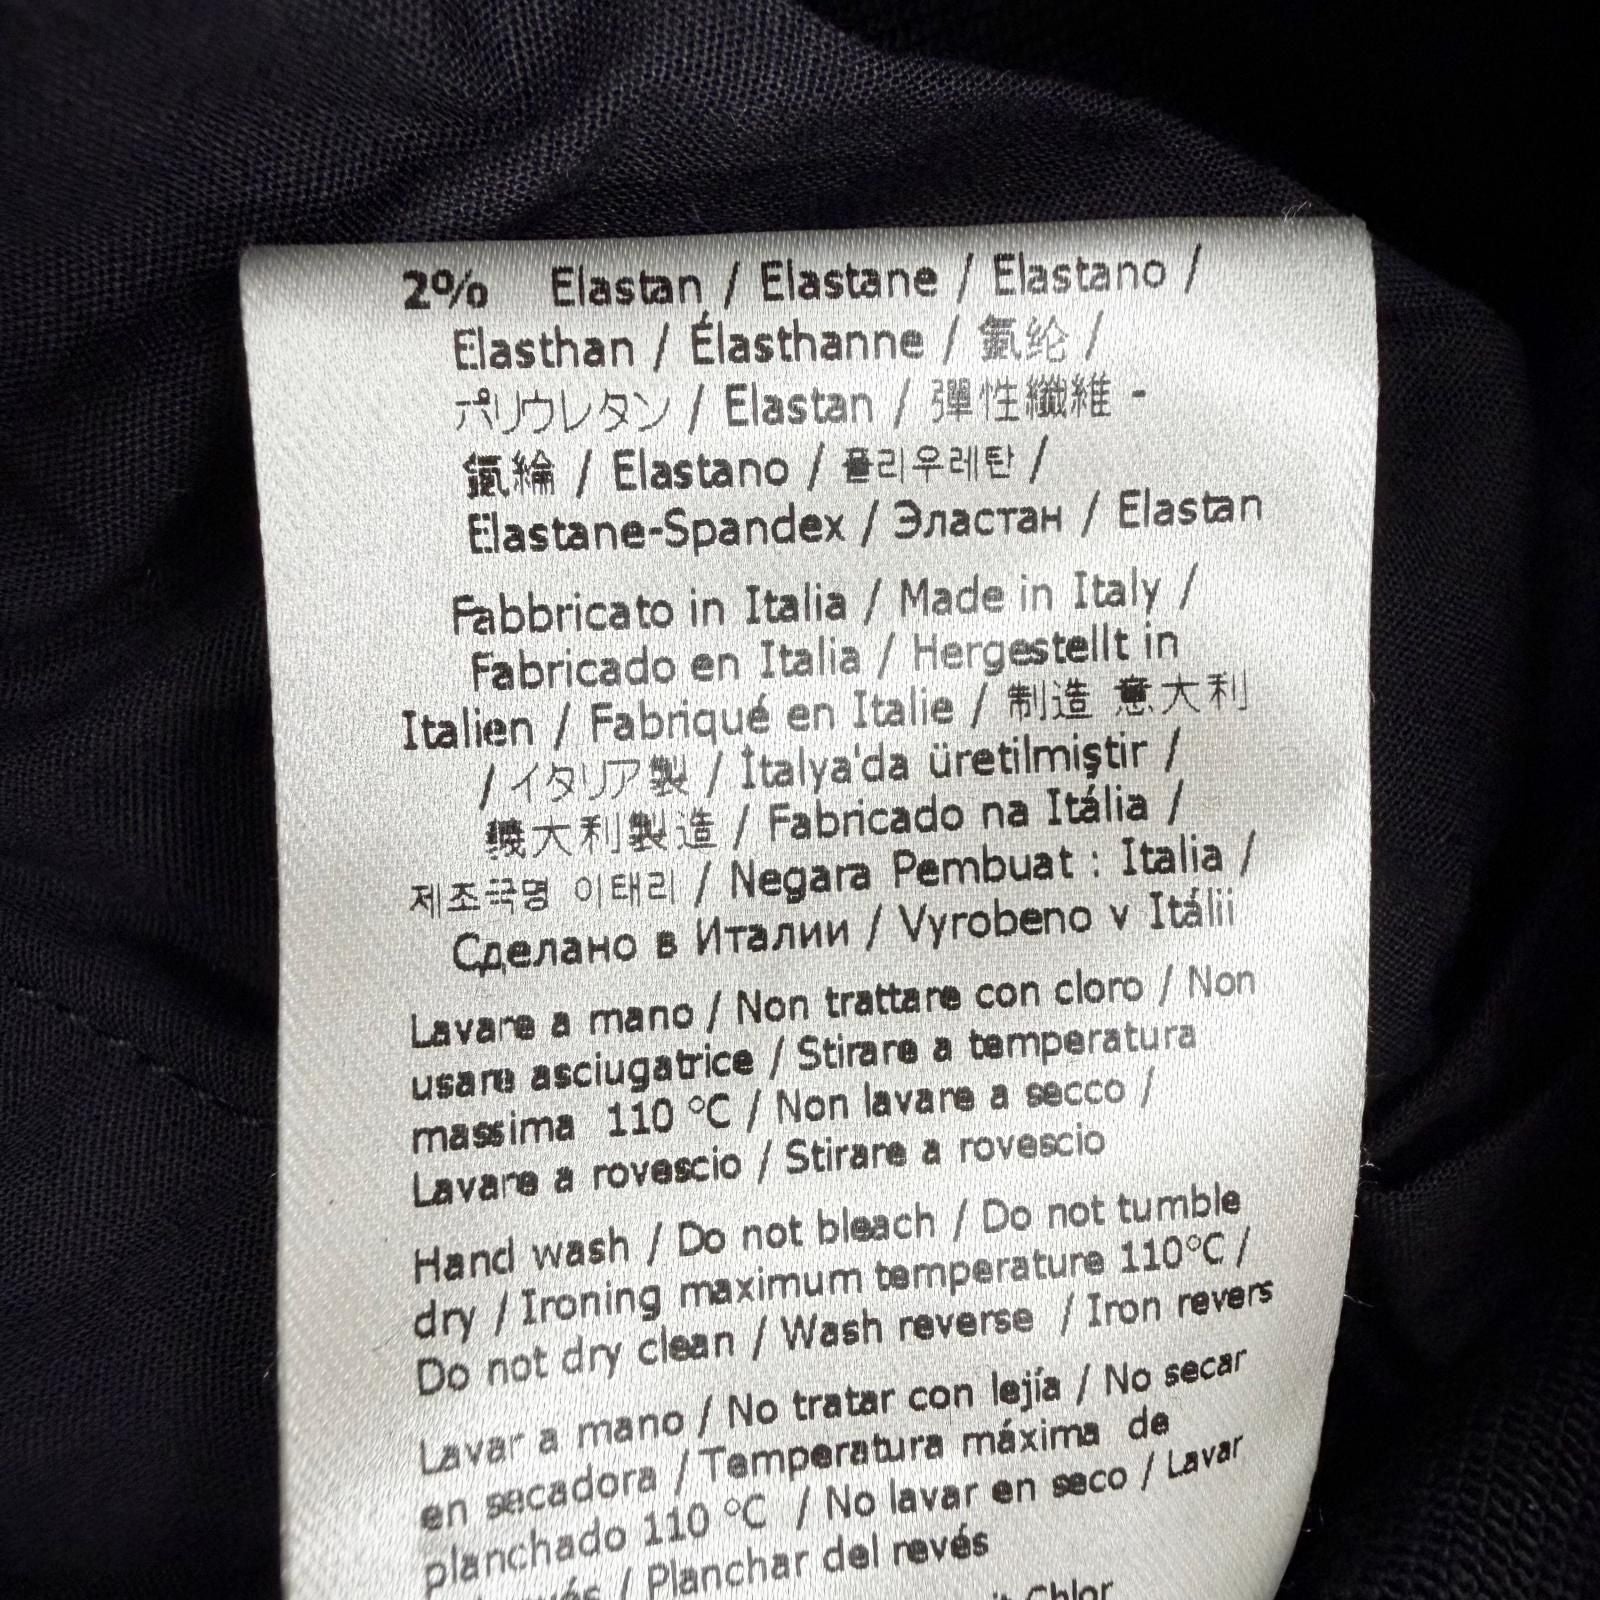 2% Elastan / Elastane / Elastano /
Elasthan / Élasthanne / 氨纶 /
ポリウレタン / Elastan / 彈性纖維 -
氨綸 / Elastano / 폴리우레탄 /
Elastane-Spandex / Эластан / Elastan
Fabbricato in Italia / Made in Italy /
Fabricado en Italia / Hergestellt in
Italien / Fabriqué en Italie / 制造 意大利
/ イタリア製 / İtalya'da üretilmiştir /
義大利製造 / Fabricado na Itália /
제조국명 이태리 / Negara Pembuat : Italia /
Сделано в Италии / Vyrobeno v Itálii
Lavare a mano / Non trattare con cloro / Non
usare asciugatrice / Stirare a temperatura
massima 110 °C / Non lavare a secco /
Lavare a rovescio / Stirare a rovescio
Hand wash / Do not bleach / Do not tumble
dry / Ironing maximum temperature 110°C /
Do not dry clean / Wash reverse / Iron revers
Lavar a mano / No tratar con lejía / No secar
en secadora / Temperatura máxima de
planchado 110 °C / No lavar en seco / Lavar
/ Planchar del revés
Chlor